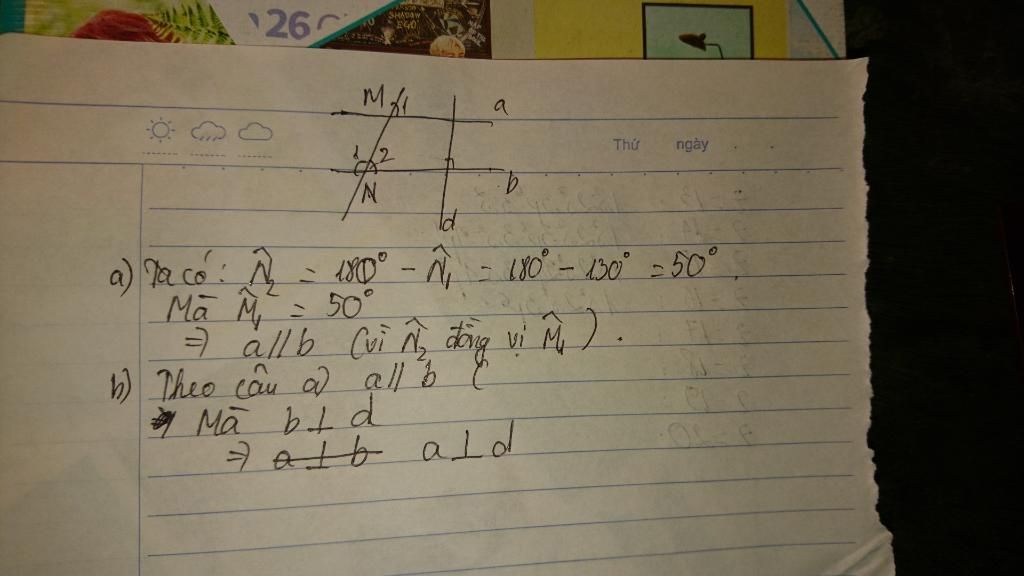 26
SHADOW
EGO
Thứ ngày
M 1 a
1 2
N b
d
a) Ta có: N̂₂ = 180° - N̂₁ = 180° - 130° = 50°.
Mà M̂₁ = 50°
⇒ a // b (vì N̂₂ đồng vị M̂₁).
b) Theo câu a) a // b (
Mà b ⊥ d
⇒ a ⊥ b a ⊥ d